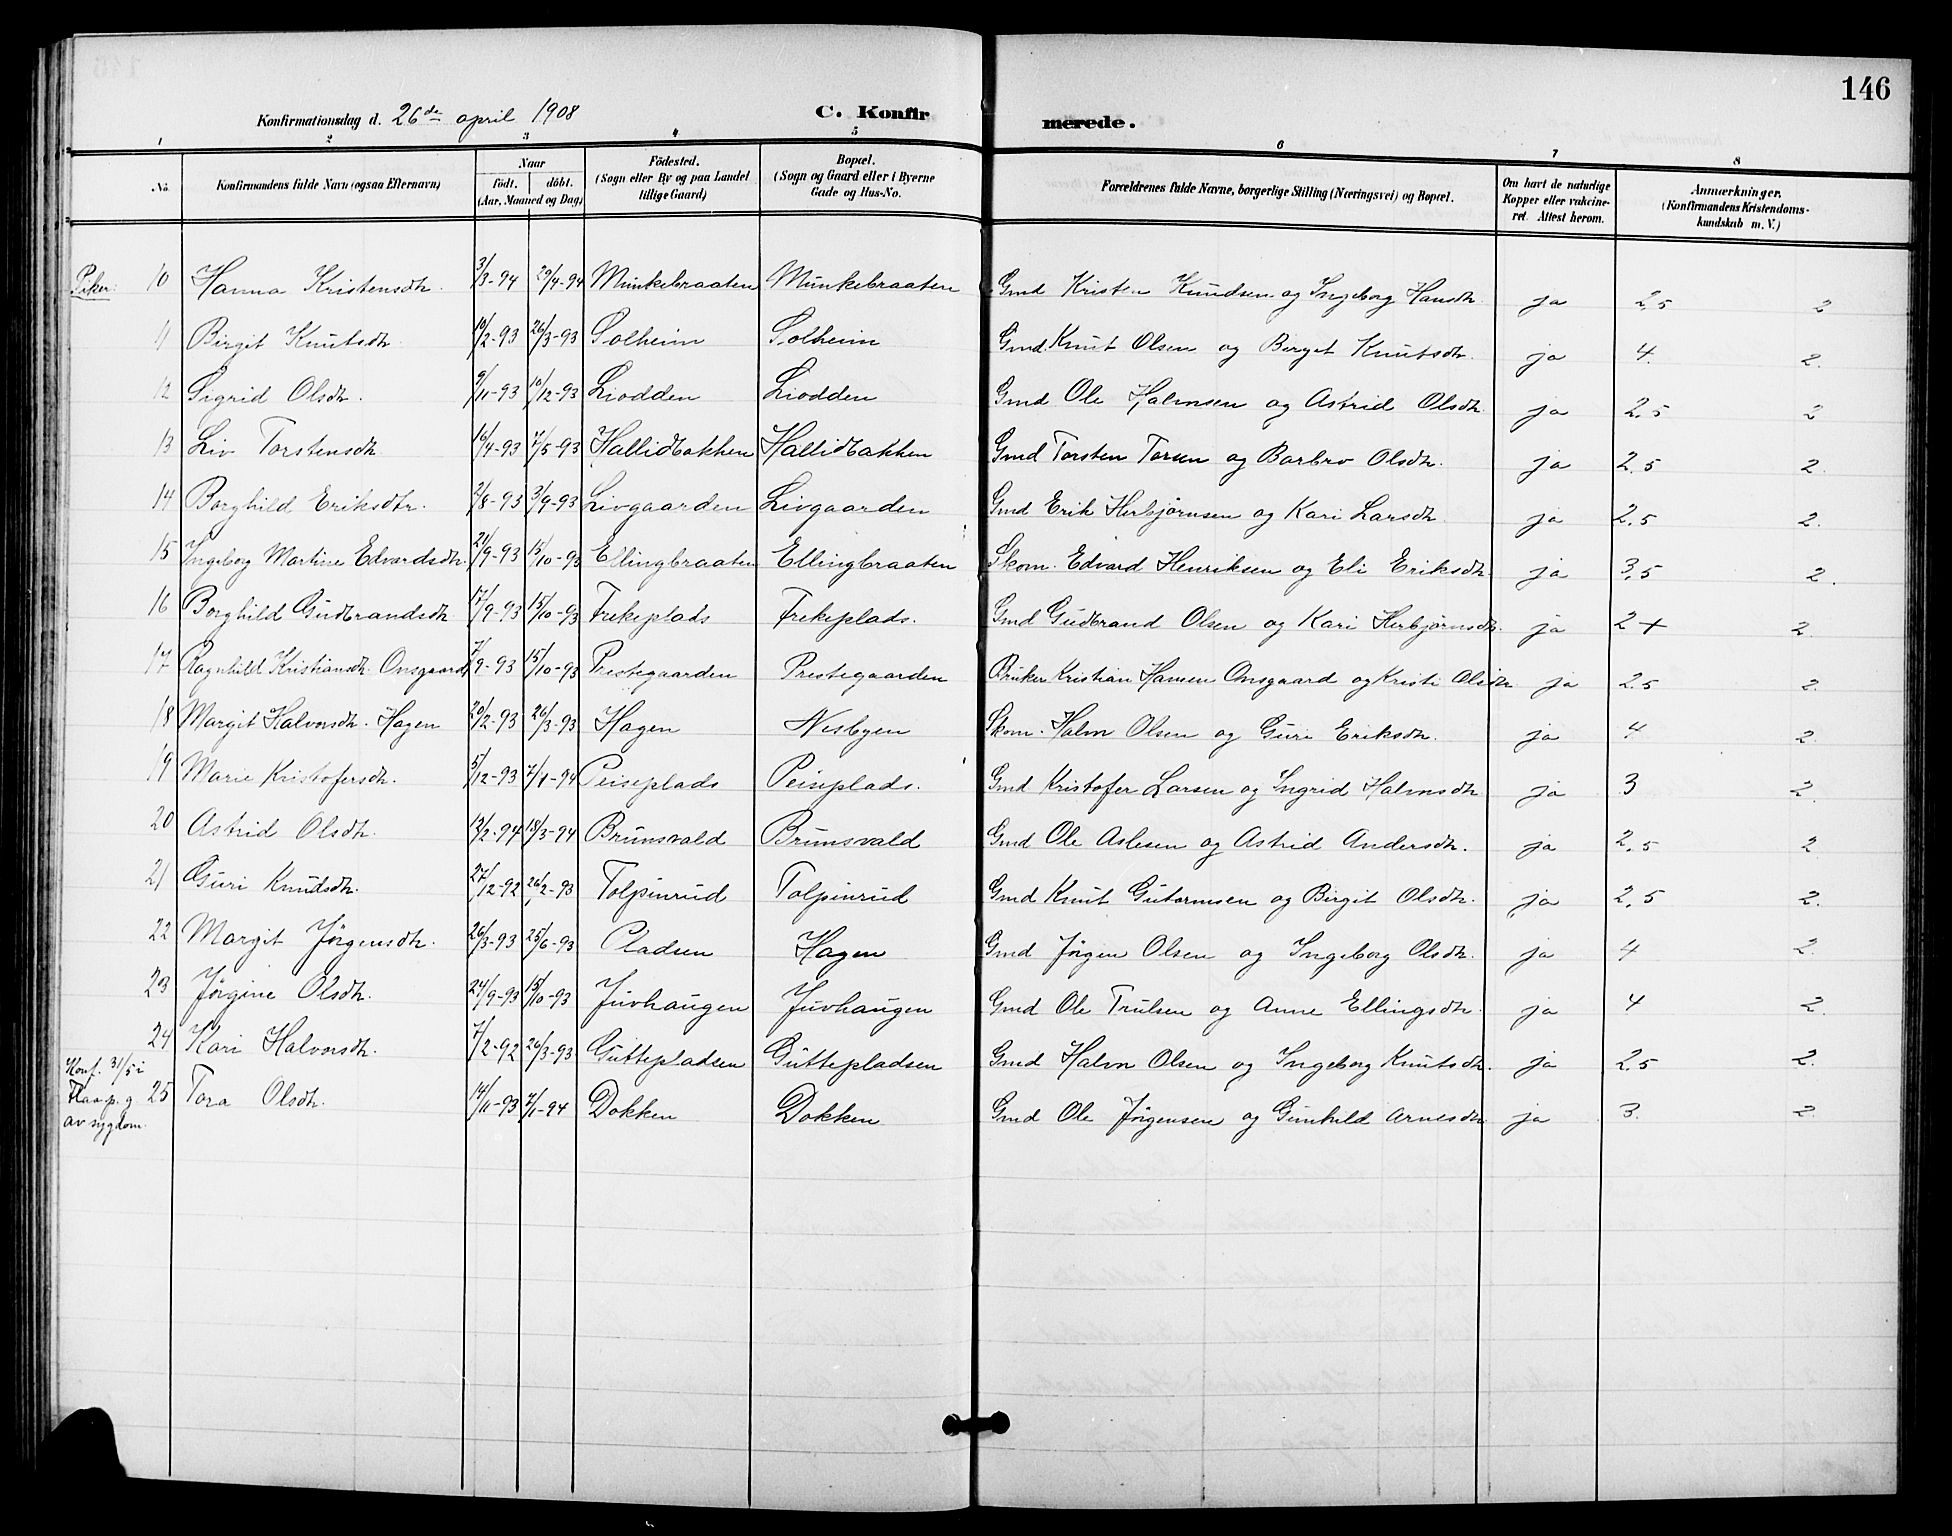 146
Konfirmationsdag d. 26de april 1908 C. Konfirmerede.
1 2 3 4 5 6 7 8
No. Konfirmandens fulde Navn (ogsaa Efternavn) Naar født. døbt. (Aar, Maaned og Dag) Födested. (Sogn eller By og paa Landet tillige Gaard) Bopæl. (Sogn og Gaard eller i Byerne Gade og Hus-No. Forældrenes fulde Navne, borgerlige Stilling (Næringsvei) og Bopæl. Om havt de naturlige Kopper eller vakcineret. Attest herom. Anmærkninger, (Konfirmandens Kristendomskundskab m. V.)
Piker: 10 Hanna Kristensdtr. 3/3-94 29/4-94 Munkebraaten Munkebraaten Gmd Kristen Knudsen og Ingeborg Hansdtr. ja 2,5 2
11 Birgit Knutsdtr. 10/2-93 26/3-93 Solheim Solheim Gmd. Knut Olsen og Birget Knutsdtr. ja 4. 2.
12 Sigrid Olsdtr. 9/11-93 10/12-93 Liodden Liodden Gmd Ole Halvorsen og Astrid Olsdtr. ja 2,5 2
13 Liv Torstensdtr. 16/4-93 7/5-93 Hallidbakken Hallidbakken Gmd Torsten Torsen og Barbro Olsdtr. ja 2,5 2.
14 Borghild Eriksdtr. 2/8-93 3/9-93 Livgaarden Livgaarden Gmd Erik Herbjørnsen og Kari Larsdtr. ja 2,5 2.
15 Ingeborg Martine Edvardsdtr. 21/9-93 15/10-93 Ellingbraaten Ellingbraaten Skom. Edvard Henriksen og Eli Eriksdtr. ja 3,5 2.
16 Borghild Gudbrandsdtr. 17/9-93 15/10-93 Frekeplads Frekeplads. Gmd Gudbrand Olsen og Kari Herbjørnsdtr. ja 2+ 2.
17 Ragnhild Kristiansdtr. Onsgaard 7/9-93 15/10-93 Prestegaarden Prestegaarden Bruker Kristian Hansen Onsgaard og Kristi Olsdtr ja 2.5 2.
18 Margit Halvorsdtr. Hagen 20/2-93 26/3-93 Hagen Nesbyen Skom. Halvor Olsen og Guri Eriksdtr. ja 4 2.
19 Marie Kristofersdtr. 5/12-93 7/1-94 Peiseplads Peiseplads. Gmd Kristofer Larsen og Ingrid Halvorsdtr ja 3 2.
20 Astrid Olsdtr. 12/2-94 18/3-94 Brunsvald Brunsvald Gmd Ole Aslesen og Astrid Andersdtr. ja 2,5 2.
21 Guri Knudsdtr. 27/12-92 26/2-93 Tolpinrud Tolpinrud Gmd Knut Gutormsen og Birgit Olsdtr. ja 2,5 2.
22 Margit Jørgensdtr. 26/3-93 25/6-93 Pladsen Hagen Gmd Jørgen Olsen og Ingeborg Olsdtr. ja 4 2.
23 Jørgine Olsdtr. 24/9-93 15/10-93 Juvhaugen Juvhaugen Gmd Ole Trulsen og Anne Ellingsdtr. ja 4 2.
24 Kari Halvorsdtr. 7/2-92 26/3-93 Guttepladsen Guttepladsen Gmd Halvor Olsen og Ingeborg Knutsdtr. ja 2,5 2.
Konf. 31/5 i Flaa p. g av sygdom. 25 Tora Olsdtr. 14/11-93 7/1-94 Dokken Dokken Gmd Ole Jørgensen og Gunhild Arnesdtr ja 3. 2.